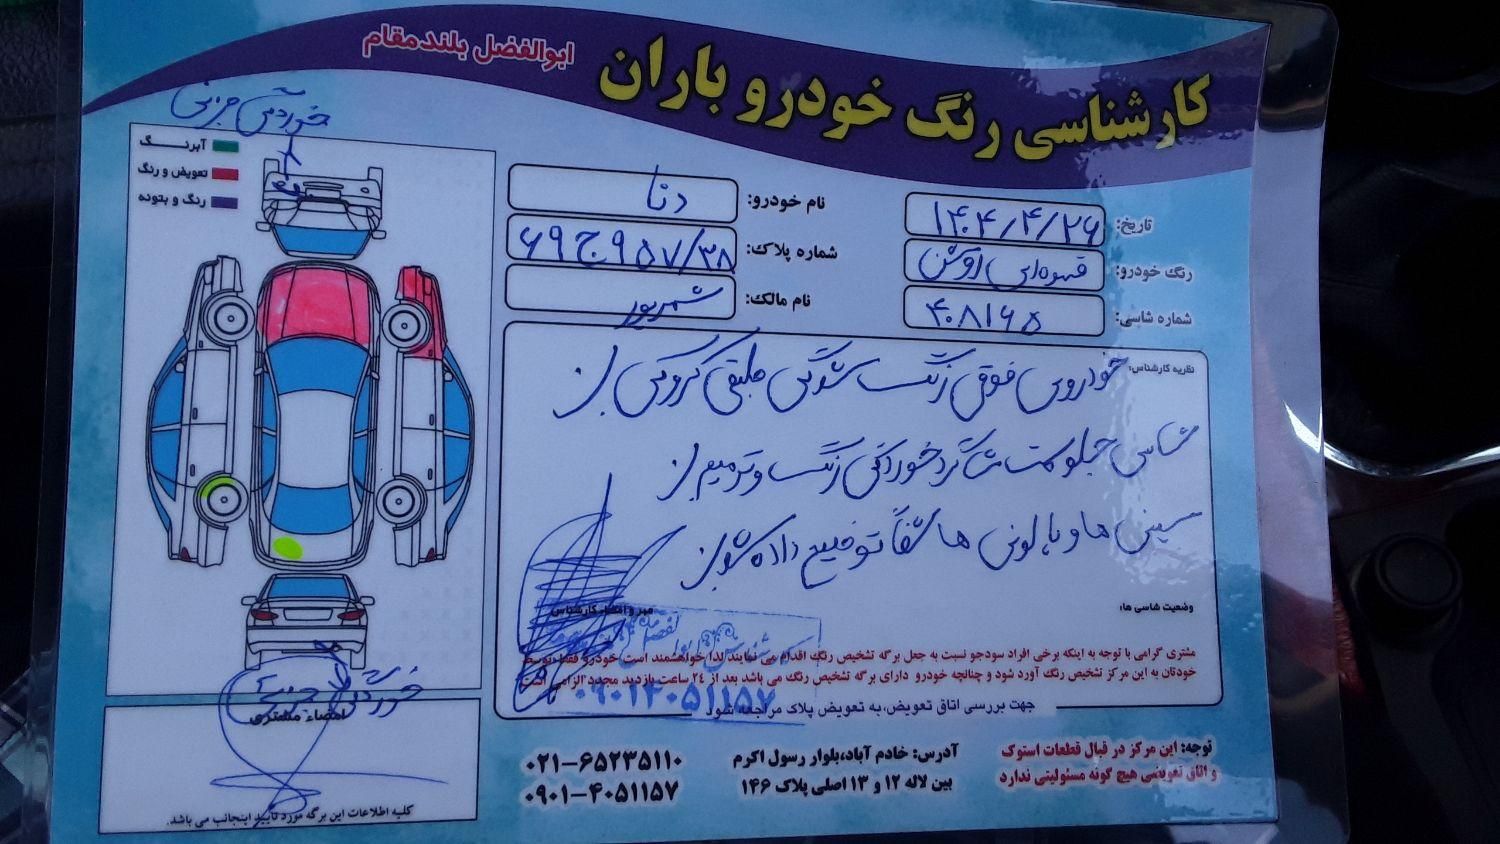 کارشناسی رنگ خودرو باران
ابوالفضل بلندمقام
تاریخ: ۱۴۰۴/۴/۲۶
نام خودرو: دنا
رنگ خودرو: قهوه‌ای روشن
شماره پلاک: ۶۹ ج ۹۵۷/۳۸
شماره شاسی: ۴۰۸۱۶۵
نام مالک:
خوردگی جزئی
آبرنگ
تعویض و رنگ
رنگ و بتونه
نظریه کارشناس:
خودروی فوق رنگ شدگی طبق کروکی
شاسی جلو سمت شاگرد خوردگی رنگ و ترمیم
سینی ها و پالونی ها شفاً توضیح داده شود
وضعیت شاسی ها:
مهر و امضاء کارشناس
مشتری گرامی با توجه به اینکه برخی افراد سودجو نسبت به جعل برگه تشخیص رنگ اقدام می نمایند لذا خواهشمند است خودرو فقط توسط
خودتان به این مرکز تشخیص رنگ آورد شود و چنانچه خودرو دارای برگه تشخیص رنگ می باشد بعد از ۲۴ ساعت بازدید مجدد الزامی است.
۰۹۰۱۴۰۵۱۱۵۷
جهت بررسی اتاق تعویض،به تعویض پلاک مراجعه شود
خوردگی جزئی
امضاء مشتری
کلیه اطلاعات این برگه مورد تایید اینجانب می باشد.
توجه: این مرکز در قبال قطعات استوک
و اتاق تعویضی هیچ گونه مسئولیتی ندارد
آدرس: خادم آباد،بلوار رسول اکرم
بین لاله ۱۲ و ۱۳ اصلی پلاک ۱۴۶
۰۲۱-۶۵۲۳۵۱۱۰
۰۹۰۱-۴۰۵۱۱۵۷